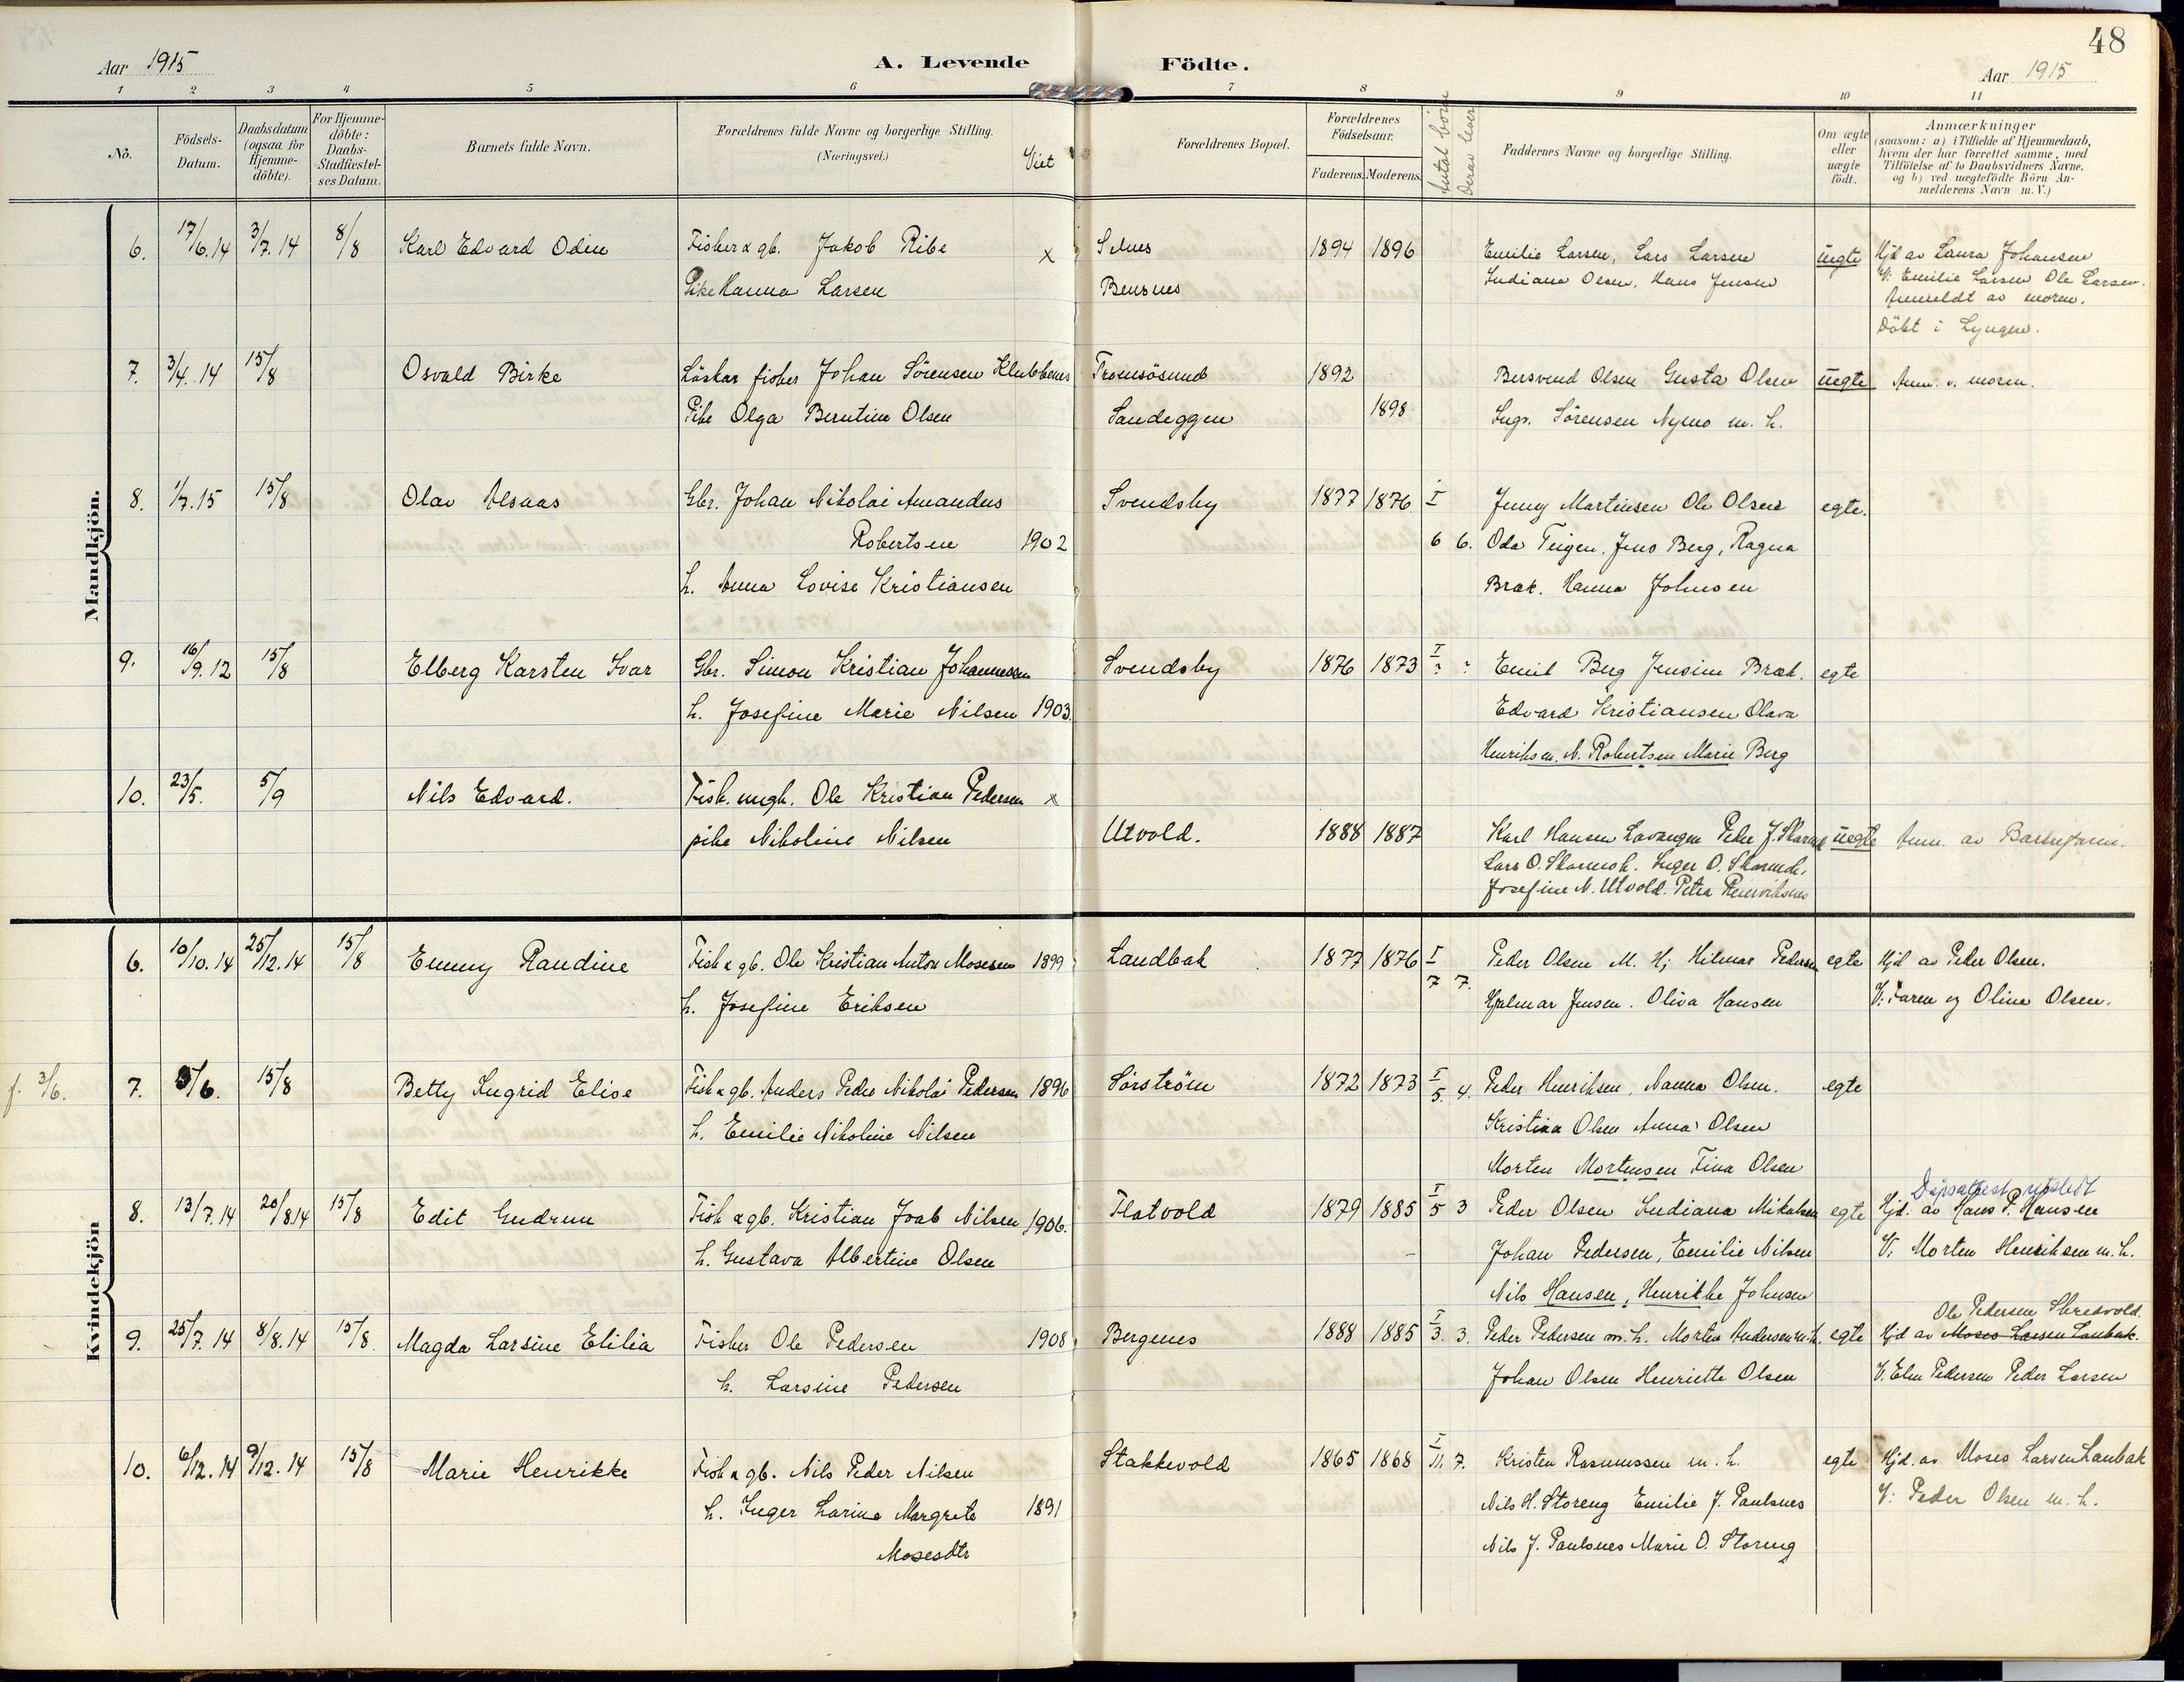 48
Aar 1915
A. Levende Födte.
Aar 1915
1 2 3 4 5 6 7 8 9 10 11
No.
Födsels-Datum.
Daabsdatum (ogsaa for Hjemme-döbte).
For Hjemme-döbte: Daabs-Stadfæstel-ses Datum.
Barnets fulde Navn.
Forældrenes fulde Navne og borgerlige Stilling.
(Næringsvei.)
Viet
Forældrenes Bopæl.
Forældrenes Födselsaar.
Faderens. Moderens.
Antal börn
Derav lever
Faddernes Navne og borgerlige Stilling.
Om ægte eller uægte födt.
Anmærkninger
(saasom: a) i Tilfælde af Hjemmedaab, hvem der har forrettet samme, med Tilföielse af to Daabsvidners Navne. og b) ved uægtefödte Börn An-melderens Navn m. V.)
Mandkjön.
6. 17/6.14 3/7.14 8/8 Karl Edvard Odin Fisker & gb. Jakob Ribe x Selnes 1894 1896 Emilie Larsen, Lars Larsen uegte Hjd av Laura Johansen
Pike Hanna Larsen Bensnes Indiana Olsen, Hans Jensen V: Emilie Larsen Ole Larsen.
Anmeldt av moren.
Döbt i Lyngen.
7. 3/4.14 15/8 Osvald Birke Löskar fisker Johan Sörensen Klubbenes Tromsösund 1892 Bersvend Olsen Gusta Olsen uegte Anm. v. moren.
Pike Olga Berntine Olsen Sandeggen 1898 Ingv. Sörensen Nymo m. h.
8. 1/7.15 15/8 Olav Alsaas Gbr. Johan Nikolai Amandus Svendsby 1877 1876 I Jenny Martinsen Ole Olsen egte.
Robertsen 1902 6 6. Oda Teigen, Jens Berg, Ragna
h. Anna Lovise Kristiansen Bræk. Hanna Johnsen
9. 16/9.12 15/8 Elberg Karsten Ivar Gbr. Simon Kristian Johannessen Svendsby 1876 1873 I ? ? Emil Berg Jensine Bræk. egte
h. Josefine Marie Nilsen 1903. Edvard Kristiansen Olava
Henriksen. N. Robertsen Marie Berg
10. 23/5. 5/9 Nils Edvard. Fisk. ungk. Ole Kristian Pedersen x
pike Nikoline Nilsen Utvold. 1888 1887 Karl Hansen Lavangen Peder J. uegte Anm. av
Lars O. Inger O.
Josefine N. Utvold. Petra
Kvindekjön
6. 10/10.14 25/12.14 15/8 Emmy Randine Fisk & gb. Ole Kristian Anton Mosesen 1899 Landbak 1877 1876 I Peder Olsen M. H; Hilmar Pedersen egte Hjd av Peder Olsen.
h. Josefine Eriksen 7 7. Hjalmar Jensen. Oliva Hansen V: Faren og Oline Olsen.
f. 3/6. 7. 3/6. 15/8 Betty Ingrid Elise Fisk & gb. Anders Peder Nikolai Pedersen 1896 Sörström 1872 1873 I 5. 4. Peder Henriksen, Nanna Olsen. egte
h. Emilie Nikoline Nilsen Kristian Olsen Anna Olsen
Morten Mortensen Tina Olsen
8. 13/7.14 20/8.14 15/8 Edit Gudrun Fisk & gb. Kristian Joab Nilsen 1906. Flatvold 1879 1885 I 5 3 Peder Olsen Indiana Mikalsen egte Dåpsattest utstedt
Hjd. av Hans P. Hansen
h. Gustava Albertine Olsen Johan Pedersen, Emilie Nilsen V: Morten Henriksen m. h.
Nils Hansen, Henrikke Johnsen
9. 25/7.14 8/8.14 15/8 Magda Larsine Elilia Fisker Ole Pedersen 1908 Bergenes 1888 1885 I 3. 3. Peder Pedersen m. h. Morten Andersen m. h. egte Ole Pedersen Skredvold
Hjd av Moses Larsen Lanbak.
h. Larsine Pedersen Johan Olsen Henriette Olsen V. Elen Pedersen Peder Larsen
10. 6/12.14 9/12.14 15/8 Marie Henrikke Fisk & gb. Nils Peder Nilsen Stakkevold 1865 1868 I 11. 7. Kristen Rasmussen m. h. egte Hjd. av Moses Larsen Lanbak
h. Inger Larina Margrete 1891 Nils H. Storeng Emilie J. Paulsnes V: Peder Olsen m. h.
Mosesdtr Nils J. Paulsnes Marie O. Storeng